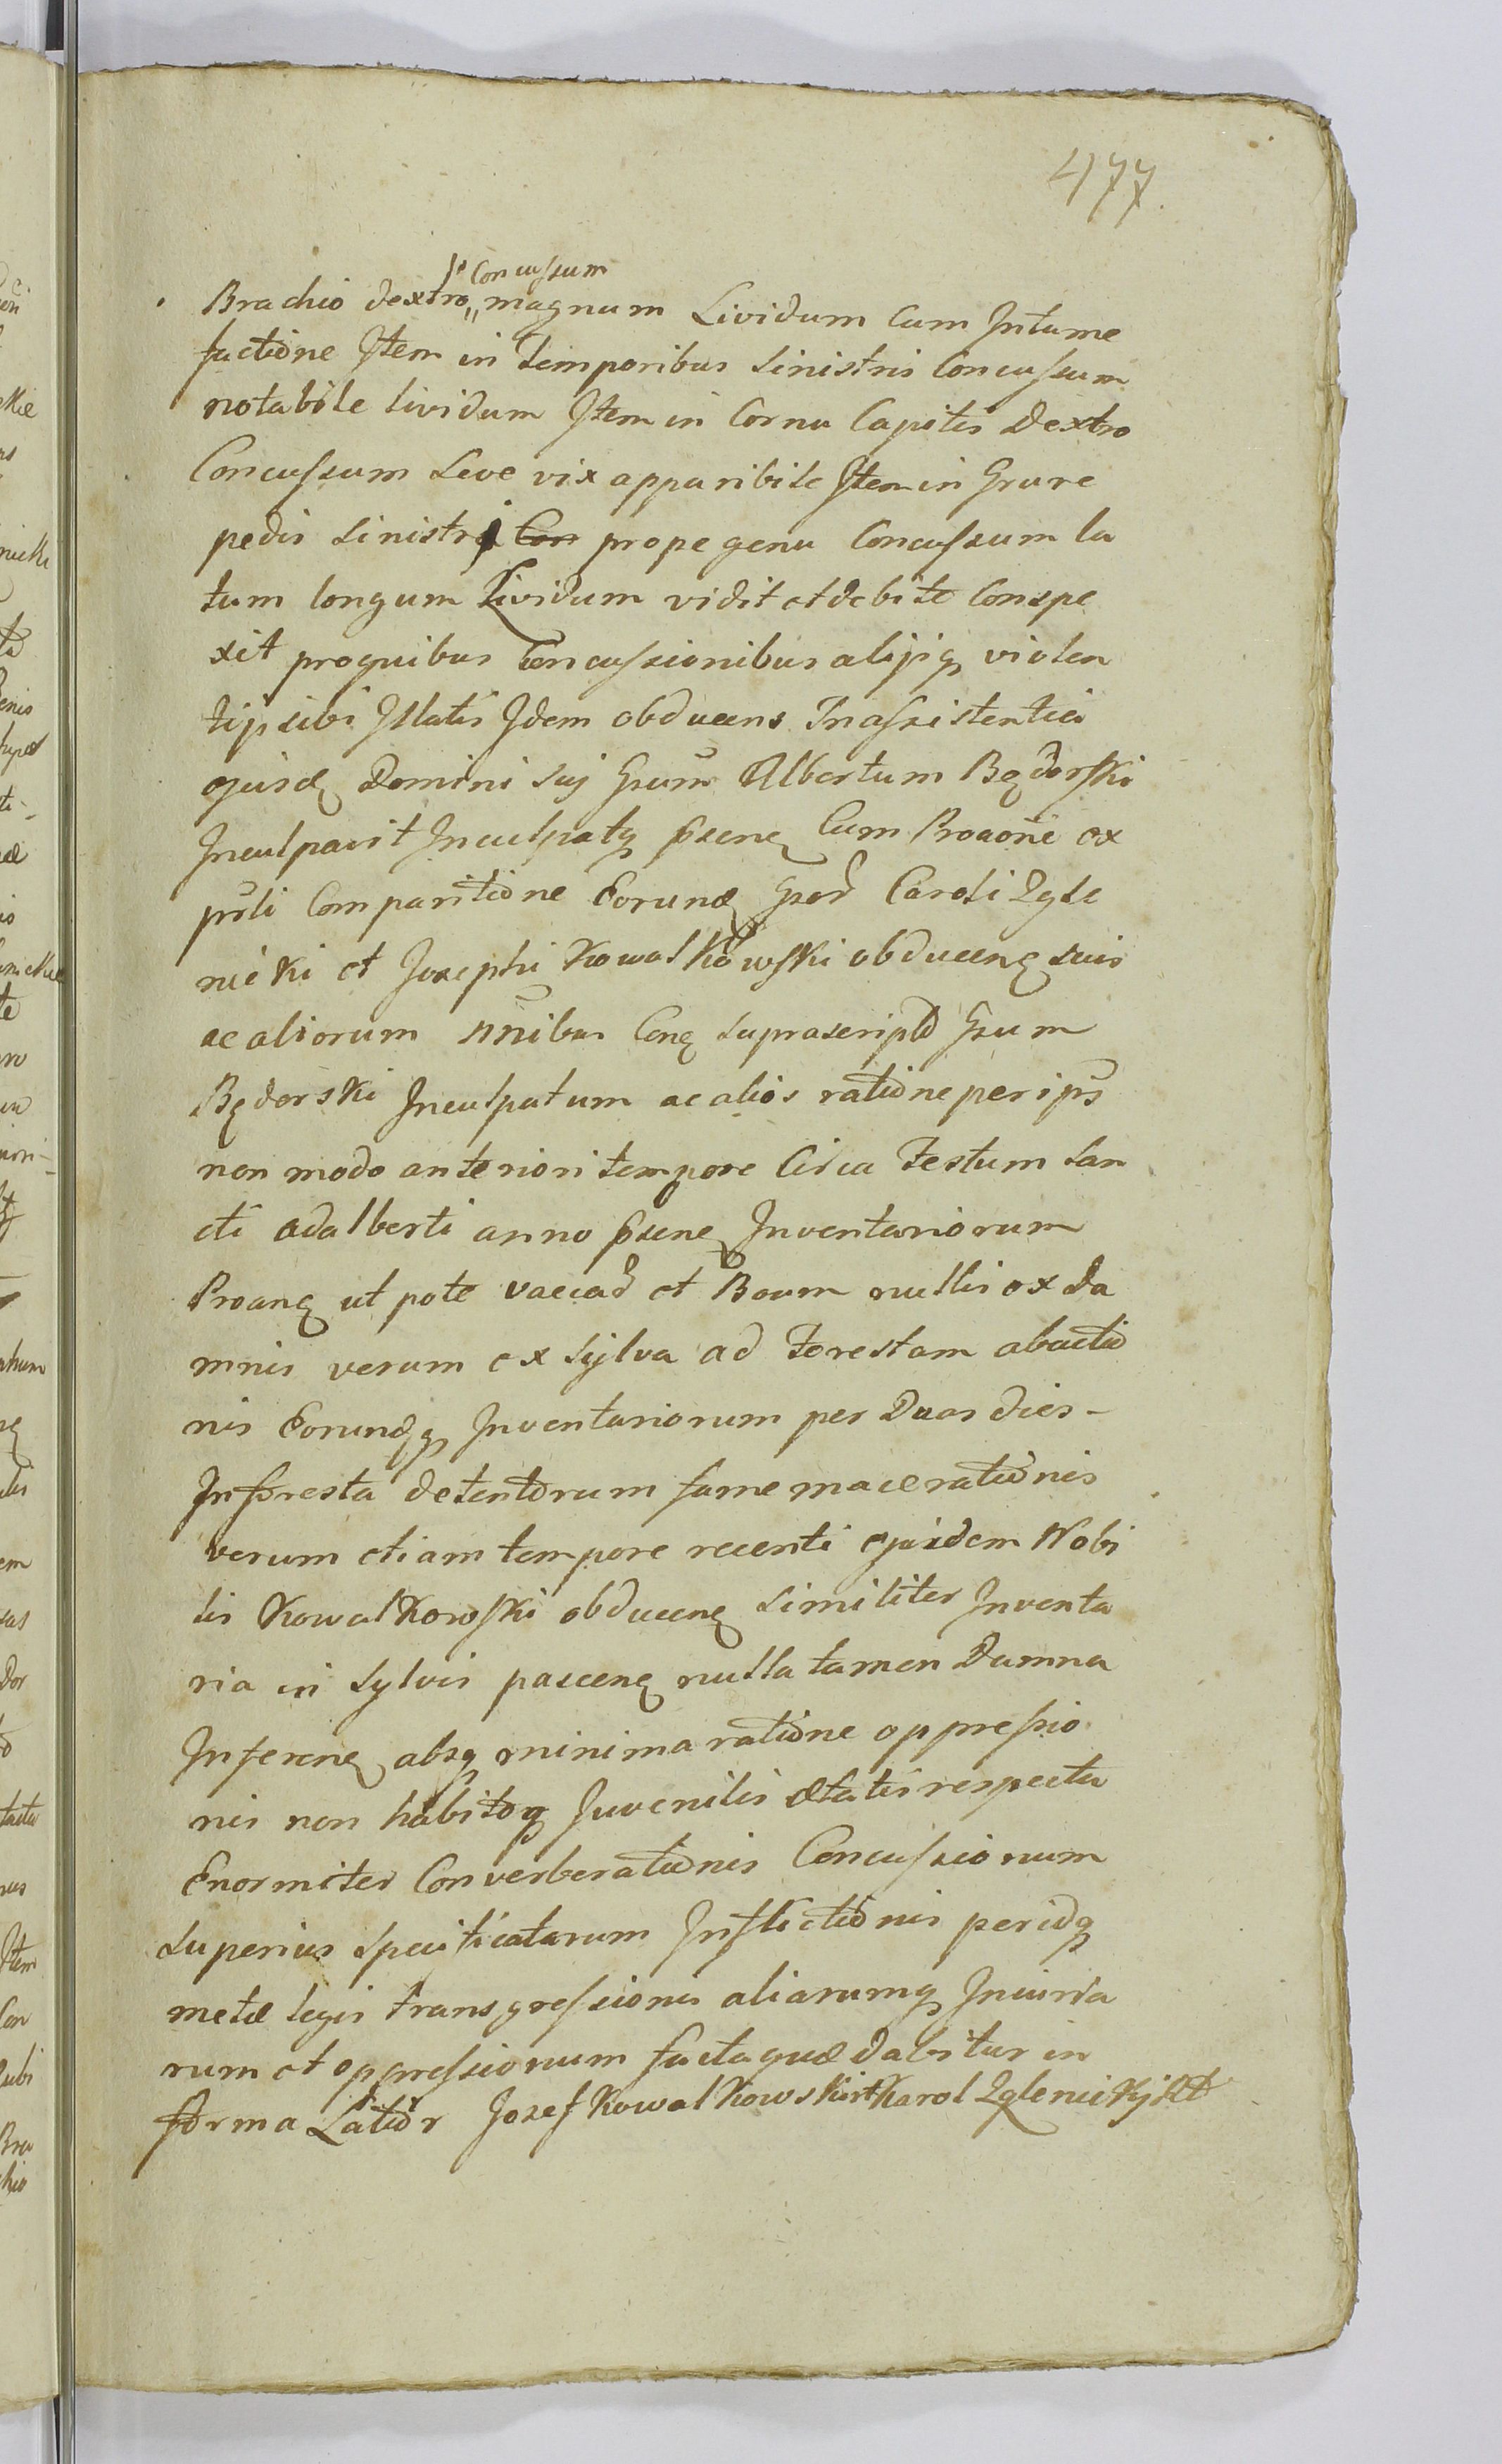 477.
Concussum
Brachio dextro magnum Lividum Cum Intume
factione Item in temporibus Sinistris Concussum
notabile lividum Item in Cornu Capitis Dextro
Concussum Leve vix apparibile Item in Grure
pedis Sinistri Con prope genu Concussum la
tum longum Lividum vidit et debite Conspe
xit proquibus Concussionibus alijsq violen
tijs sibi Illatis Idem obducens Inassistentia
ejusd Domini Suj Gsum Albertum Będorski
Inculpavit Inculpatq psens Cum Proaone ex
pśli Comparitione Eorund Gsor Caroli Zgle
nicki et Josephi Kowalkowski obducen suis
ac aliorum nnibus Con suprascriptu Gsum
Będorski Inculpatum ac alios ratione per ips
non modo anteriori tempore Circa Festum San
cti Adalberti anno psen Inventariorum
Proan ut pote vaccar et Boum nullis ex Da
mnis verum ex Sylva ad Forestam abactio
nis Eorundq Inventariorum per Duas dies -
Inforesta detentorum fame macerationis
verum etiam tempore recenti ejusdem Nobi
lis Kowalkowski obducen similiter Inventa
ria in Sylvis pascen nulla tamen Damna
Inferen absq minima ratione oppressio
nis non habitoq Juvenilis ætatis respectu
Enormiter Converberationis Concussionum
superius specificatarum Inflictionis per idq
metæ legis transgressionis aliarumq Iniuria
rum et oppressionum facta quæ dabitur in
forma Latior Jozef Kowalkowski Karol Zglenickj